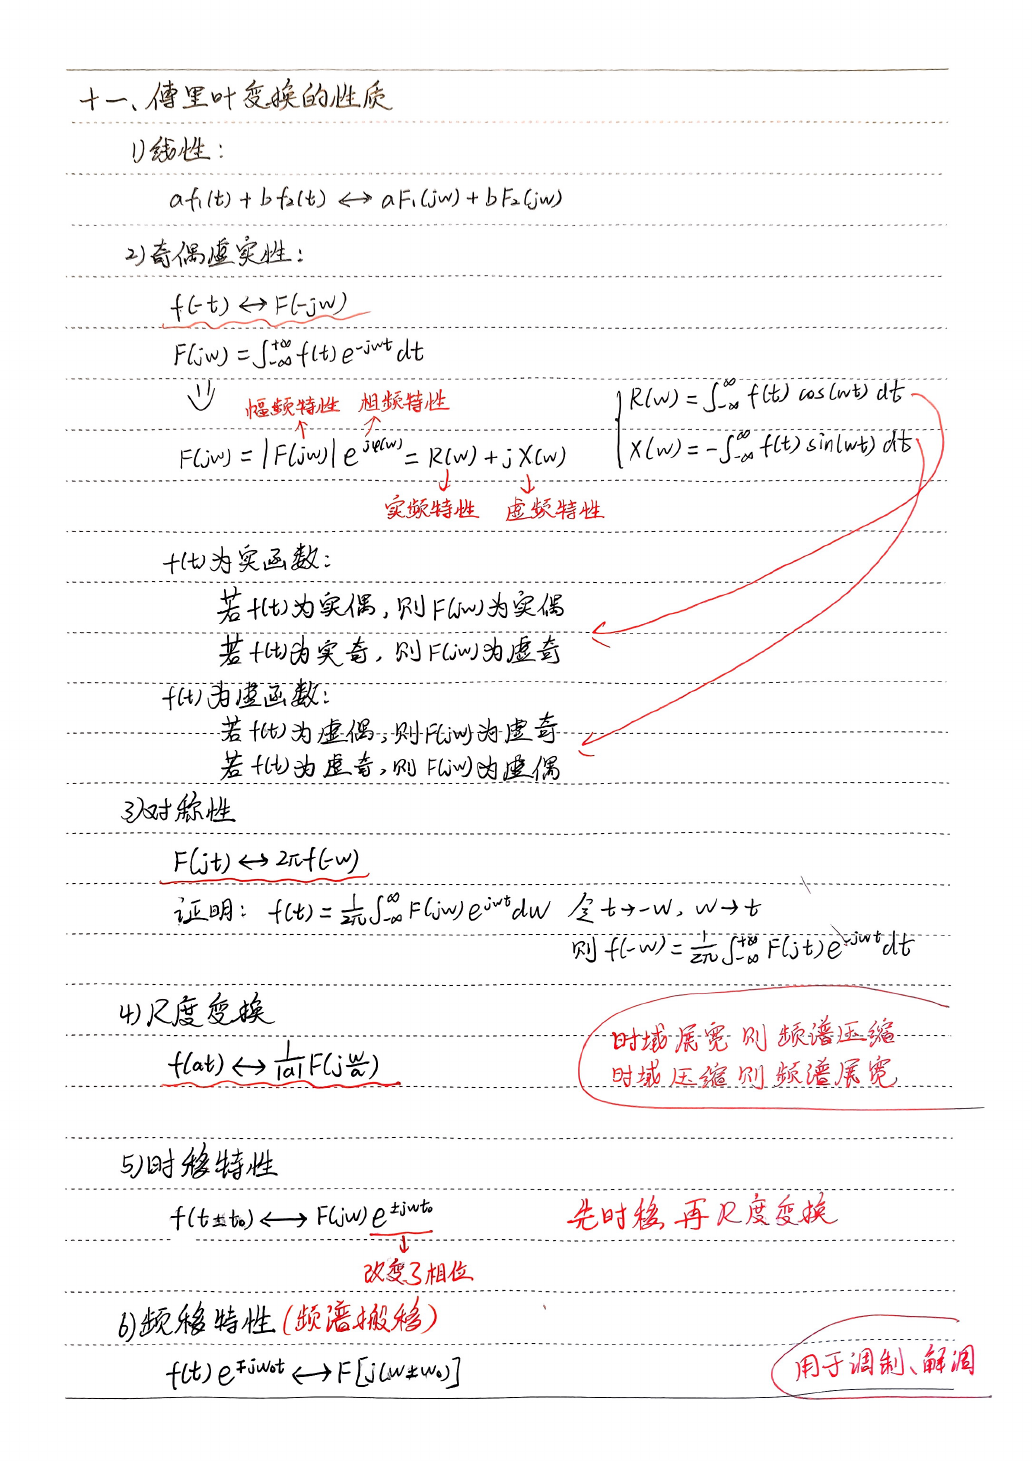 十一、傅里叶变换的性质
1)线性：
af₁(t)+bf₂(t)↔aF₁(jw)+bF₂(jw)
2)奇偶虚实性：
f(-t)↔F(-jw)
F(jw)=∫₋∞^+∞ f(t)e^-jwt dt
⇓
幅频特性 相频特性
F(jw)=|F(jw)|e^jφ(w)=R(w)+jX(w)
实频特性 虚频特性
R(w)=∫₋∞^∞ f(t)cos(wt)dt
X(w)=-∫₋∞^∞ f(t)sin(wt)dt
f(t)为实函数：
若f(t)为实偶，则F(jw)为实偶
若f(t)为实奇，则F(jw)为虚奇
f(t)为虚函数：
若f(t)为虚偶，则F(jw)为虚奇
若f(t)为虚奇，则F(jw)为虚偶
3)对称性
F(jt)↔2πf(-w)
证明：f(t)=1/2π∫₋∞^∞ F(jw)e^jwt dw 令t→-w，w→t
则f(-w)=1/2π∫₋∞^+∞ F(jt)e^-jwt dt
4)尺度变换
f(at)↔1/|a|F(jw/a)
时域展宽则频谱压缩
时域压缩则频谱展宽
5)时移特性
f(t±t₀)↔F(jw)e^±jwt₀
先时移，再尺度变换
改变了相位
6)频移特性(频谱搬移)
f(t)e^∓jw₀t↔F[j(w±w₀)]
用于调制、解调